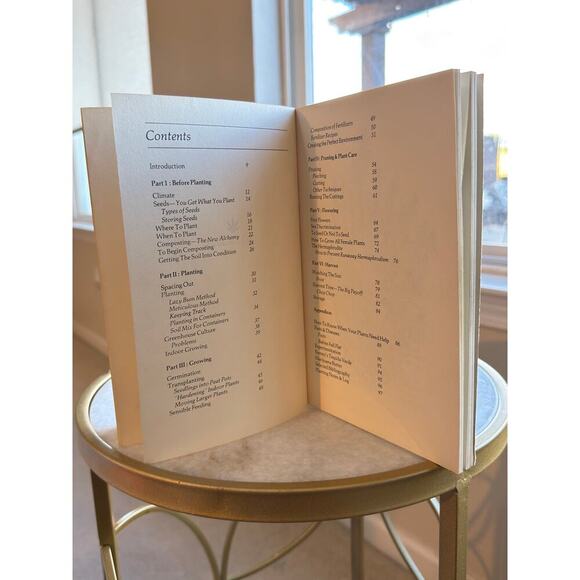 Contents
Introduction 9
Part I : Before Planting
Climate 12
Seeds—You Get What You Plant 14
Types of Seeds
Storing Seeds 16
Where To Plant 18
When To Plant 21
Composting—The New Alchemy 22
To Begin Composting 24
Getting The Soil Into Condition 26
Part II : Planting
Spacing Out 30
Planting 31
Lazy Bum Method
Meticulous Method 32
Keeping Track
Planting in Containers 34
Soil Mix For Containers 37
Greenhouse Culture 38
Problems 39
Indoor Growing
Part III : Growing 42
Germination 44
Transplanting
Seedlings into Peat Pots 45
"Hardening" Indoor Plants 46
Moving Larger Plants
Sensible Feeding 48
Composition of Fertilizers 49
Fertilizer Recipes 50
Creating the Perfect Environment 51
Part IV : Pruning & Plant Care
Pruning 54
Pinching 58
Cutting 59
Other Techniques 60
Rooting The Cuttings 61
Part V : Flowering
Flowers 64
Sex Discrimination 67
To Seed Or Not To Seed 69
How To Grow All Female Plants 72
The Hermaphrodite 74
How to Prevent Runaway Hermaphrodism 76
Part VI : Harvest
Watching The Sun 78
Harvest Time—The Big Payoff 79
Chop Chop 81
Storage 82
Appendices
How To Know When Your Plants Need Help 86
Pests & Diseases 88
Experimentation 90
Selected Bibliography 95
Planting Notes & Log 96
97